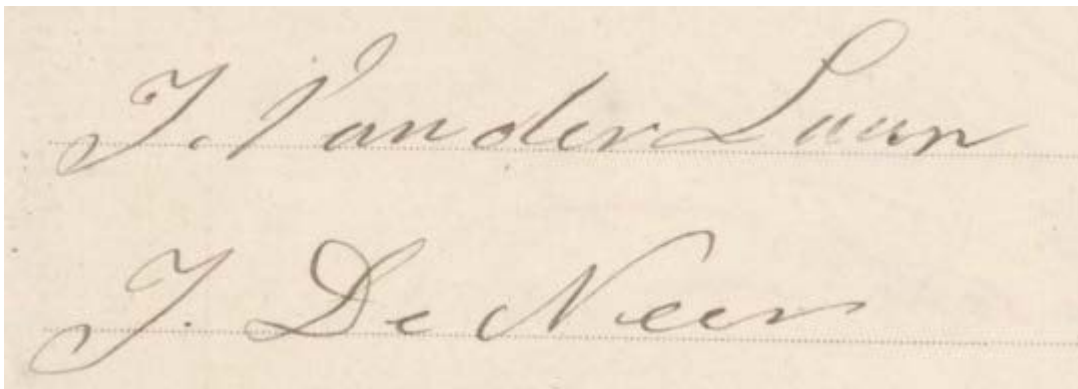 J. Van der Laan
J. De Neer